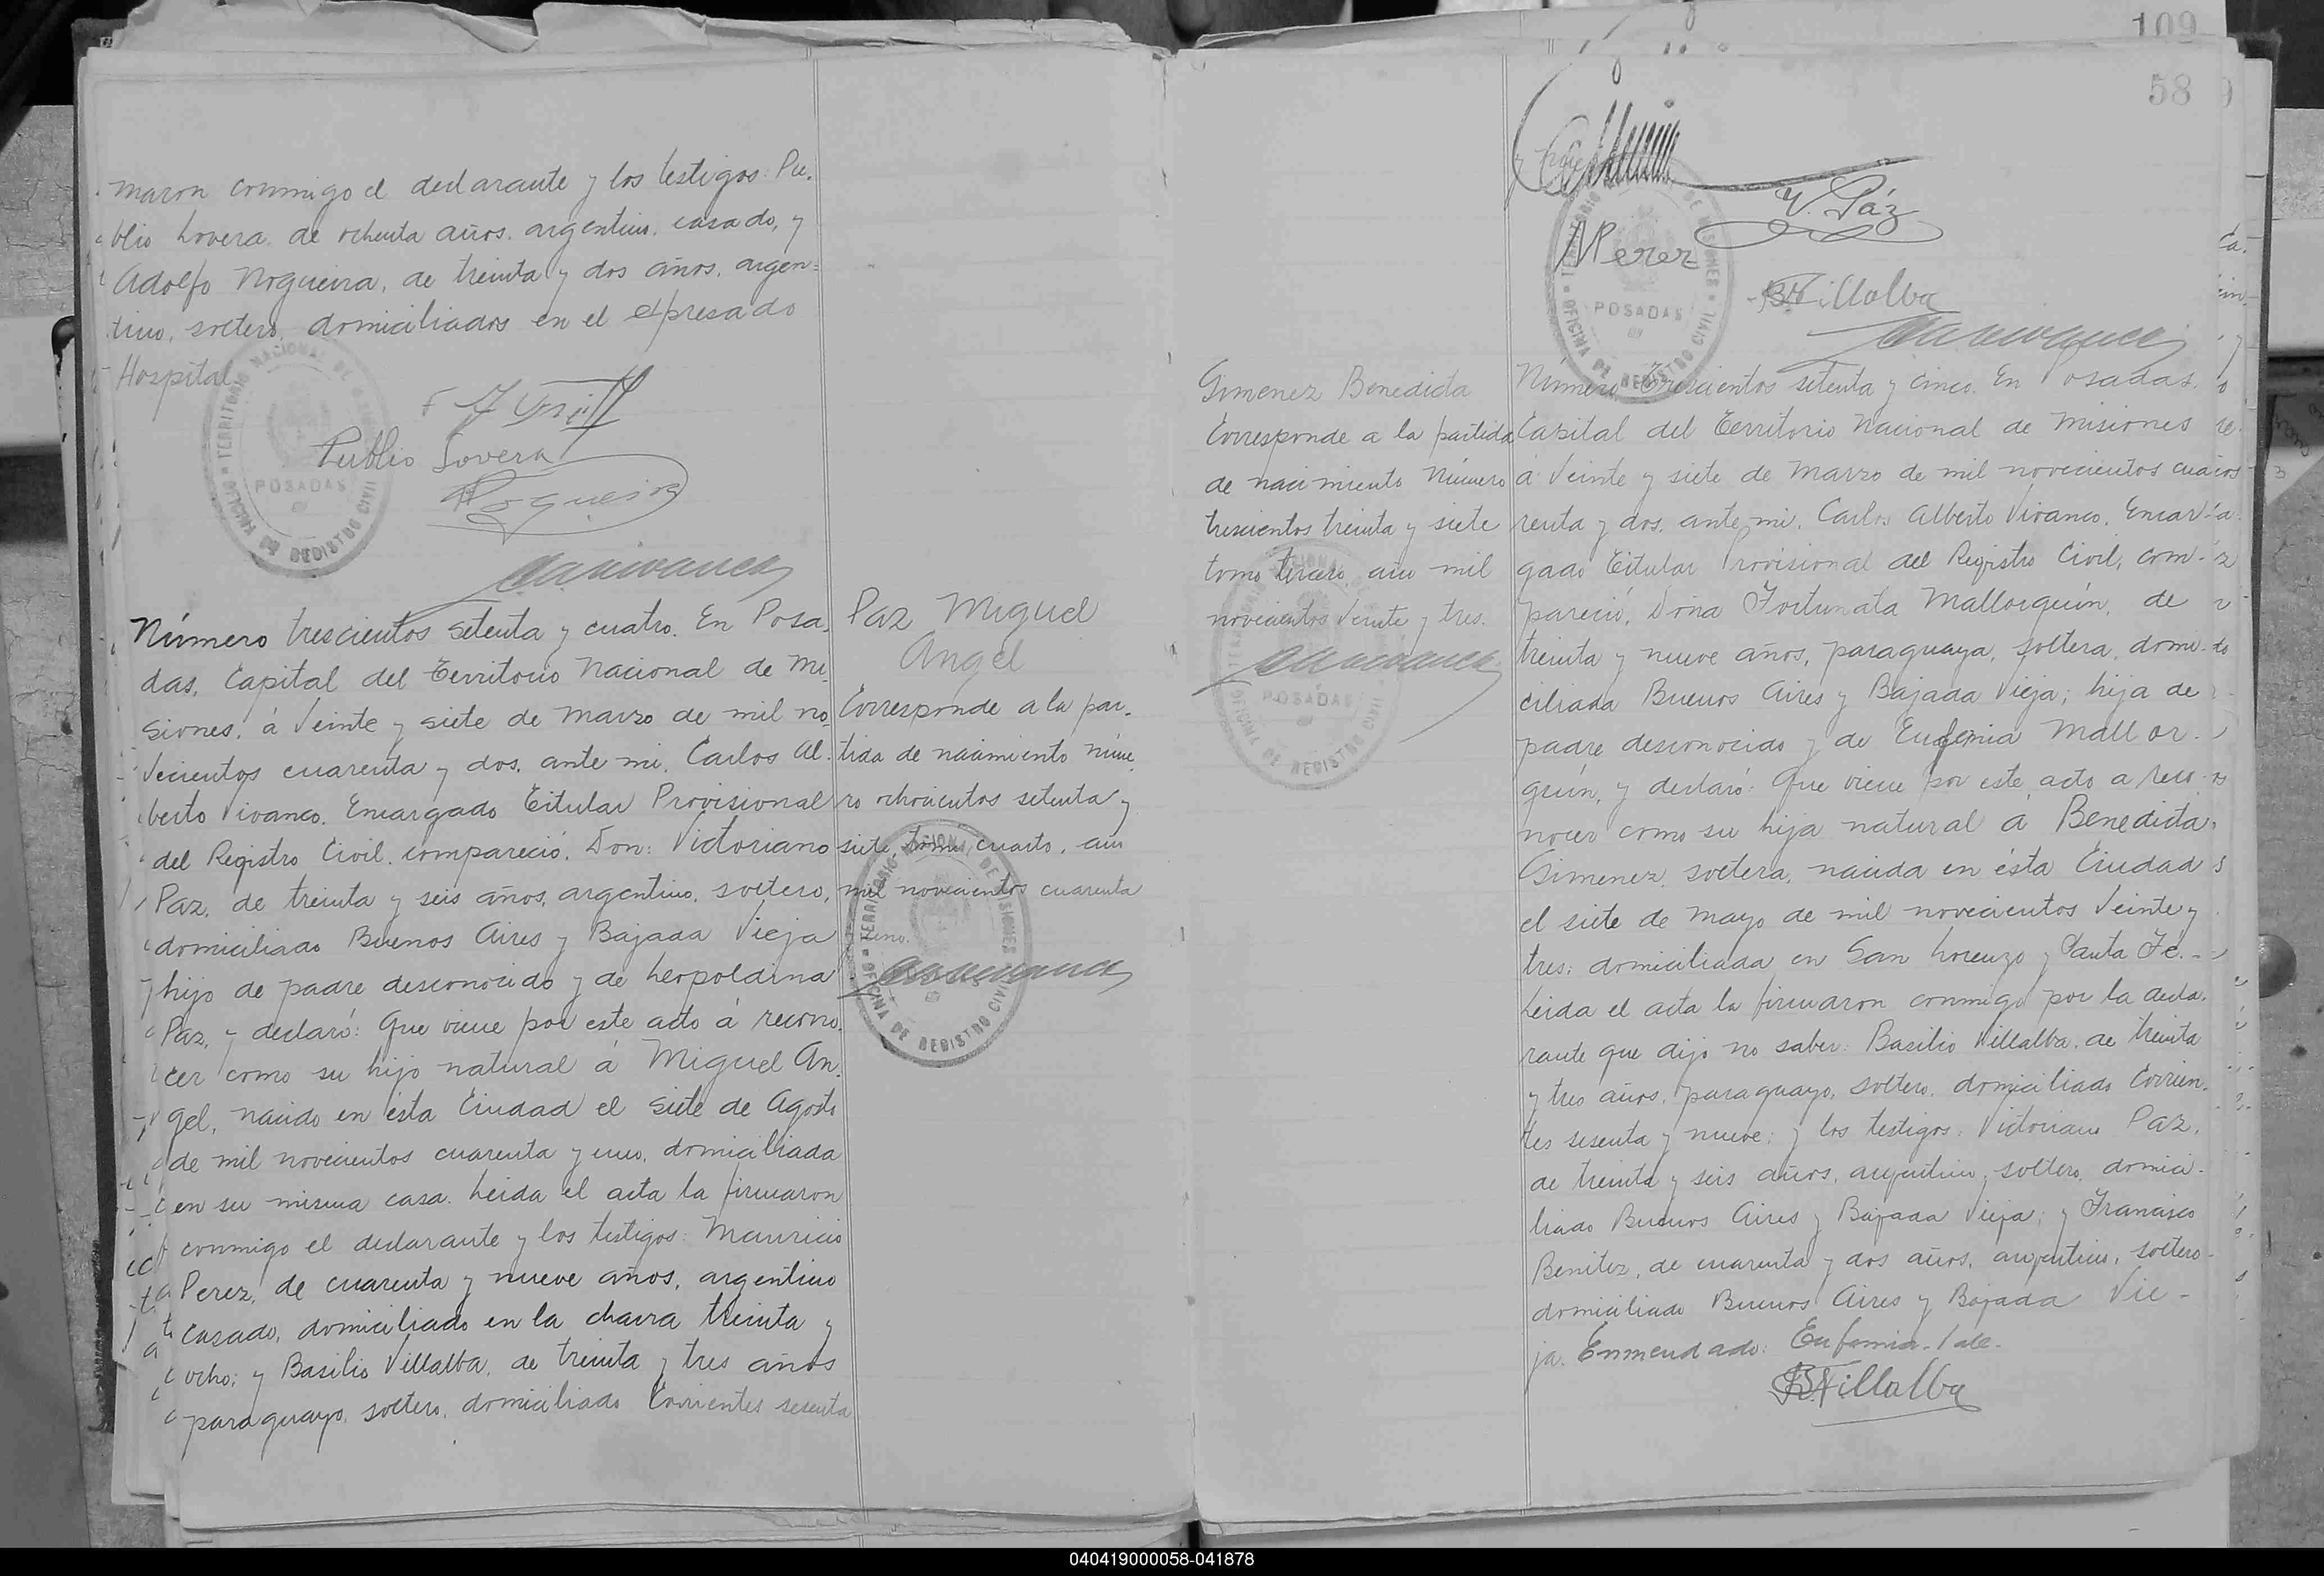 maron conmigo el declarante y los testigos: Pu-
blio Lovera, de ochenta años, argentino, casado, y
Adolfo Nogueira, de treinta y dos años, argen=
tino, soltero, domiciliados en el expresado
Hospital.
Publio Lovera
ANogueira
TERRITORIO NACIONAL DE MISIONES
POSADAS
OFICINA DE REGISTRO CIVIL
Número trescientos setenta y cuatro. En Posa-
das, Capital del Territorio Nacional de Mi-
siones, á veinte y siete de Marzo de mil no
vecientos cuarenta y dos, ante mi, Carlos Al-
berto Vivanco, Encargado Titular Provisional
del Registro Civil, compareció, Don: Victoriano
Paz, de treinta y seis años, argentino, soltero,
domiciliado Buenos Aires y Bajada Vieja
hijo de padre desconocido y de Leopoldina
Paz, y declaró: Que viene por este acto á recono-
cer como su hijo natural á Miguel An-
gel, nacido en ésta Ciudad el siete de Agosto
de mil novecientos cuarenta y uno, domiciliada
en su misma casa. Leida el acta la firmaron
conmigo el declarante y los testigos: Mauricio
Perez, de cuarenta y nueve años, argentino
casado, domiciliado en la chacra treinta y
ocho; y Basilio Villalba, de treinta y tres años
paraguayo, soltero, domiciliado Corrientes sesenta
Paz Miguel
Angel
Corresponde a la par-
tida de nacimiento núme
ro ochocientos setenta y
siete, tomo cuarto, año
mil novecientos cuarenta
y uno.
TERRITORIO NACIONAL DE MISIONES
OFICINA DE REGISTRO CIVIL
109
58
y nueve
V. Páz
MPerez
BVillalba
TERRITORIO NACIONAL DE MISIONES
POSADAS
OFICINA DE REGISTRO CIVIL
Gimenez Benedicta
Corresponde a la partida
de nacimiento Número
trescientos treinta y siete
tomo tercero, año mil
novecientos veinte y tres.
TERRITORIO NACIONAL
POSADAS
OFICINA DE REGISTRO CIVIL
Número Trescientos setenta y cinco. En Posadas,
Capital del Territorio Nacional de Misiones
á veinte y siete de Marzo de mil novecientos cua
renta y dos, ante mi, Carlos Alberto Vivanco, Encar-
gado Titular Provisional del Registro Civil, com-
pareció, Doña Fortunata Mallorquín, de
treinta y nueve años, paraguaya, soltera, domi-
ciliada Buenos Aires y Bajada Vieja; hija de
padre desconocido y de Eufemia Mallor-
quín, y declaró: Que viene por este acto a reco-
nocer como su hija natural á Benedicta
Gimenez, soltera, nacida en ésta Ciudad
el siete de Mayo de mil novecientos veinte y
tres; domiciliada en San Lorenzo y Santa Fe. -
Leida el acta la firmaron conmigo por la decla-
rante que dijo no saber: Basilio Villalba, de treinta
y tres años, paraguayo, soltero, domiciliado Corrien-
tes sesenta y nueve; y los testigos: Victoriano Paz,
de treinta y seis años, argentino, soltero, domici-
liado Buenos Aires y Bajada Vieja; y Francisco
Benitez, de cuarenta y dos años, argentino, soltero
domiciliado Buenos Aires y Bajada Vie-
ja. Enmendado: Eufemia. Vale.
BVillalba
040419000058-041878